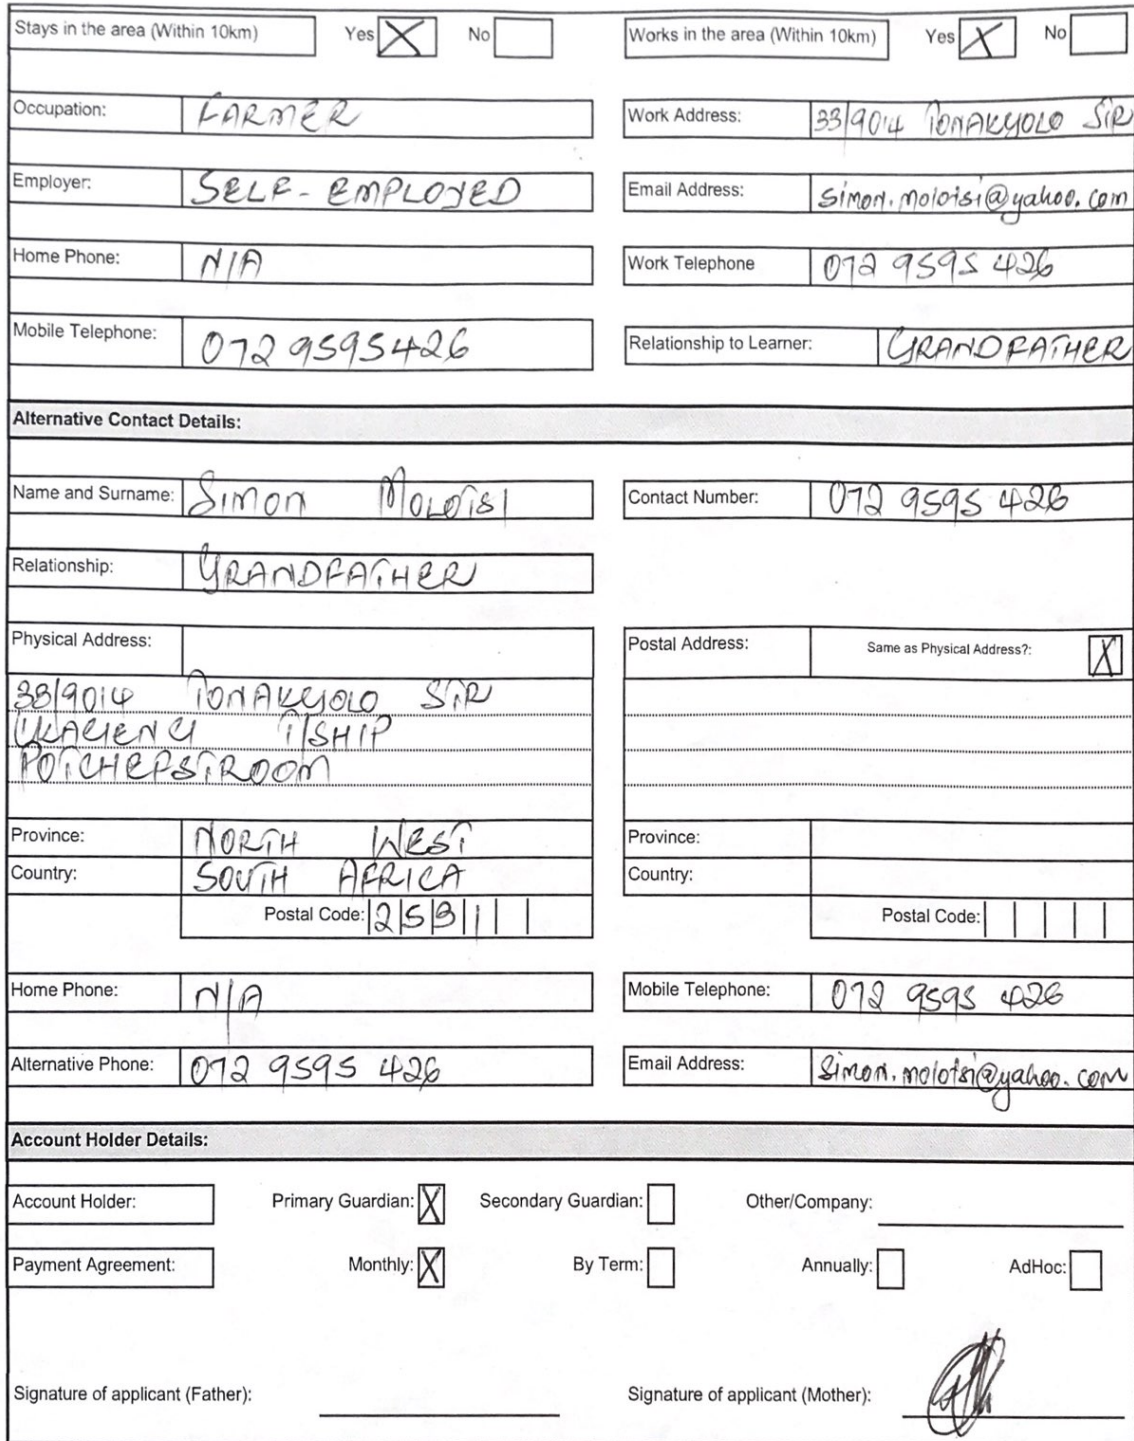 Stays in the area (Within 10km) Yes X No Works in the area (Within 10km) Yes X No
Occupation: FARMER Work Address: 33/9014 TONAKYOLO STR
Employer: SELF-EMPLOYED Email Address: simon.moloisi@yahoo.com
Home Phone: N/A Work Telephone 072 9595 426
Mobile Telephone: 072 9595426 Relationship to Learner: GRANDFATHER
Alternative Contact Details:
Name and Surname: SIMON MOLOISI Contact Number: 072 9595 426
Relationship: GRANDFATHER
Physical Address: Postal Address: Same as Physical Address?: X
33/9014 TONAKYOLO STR
T/SHIP
POTCHEFSTROOM
Province: NORTH WEST Province:
Country: SOUTH AFRICA Country:
Postal Code: 2531 Postal Code:
Home Phone: N/A Mobile Telephone: 072 9595 426
Alternative Phone: 072 9595 426 Email Address: simon.moloisi@yahoo.com
Account Holder Details:
Account Holder: Primary Guardian: X Secondary Guardian: Other/Company:
Payment Agreement: Monthly: X By Term: Annually: AdHoc:
Signature of applicant (Father): Signature of applicant (Mother):